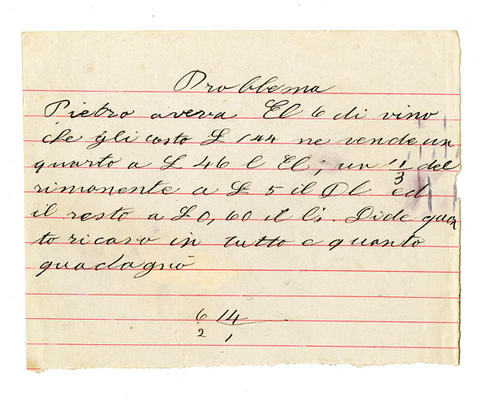 Problema
Pietro aveva El 6 di vino
che gli costò £ 144 ne vende un
quarto a £ 46 l El; un 1/3 del
rimanente a £ 5 il Dl ed
il resto a £ 0,60 il l. Dide quan
to ricavo in tutto e quanto
guadagnò
6 14
2 1